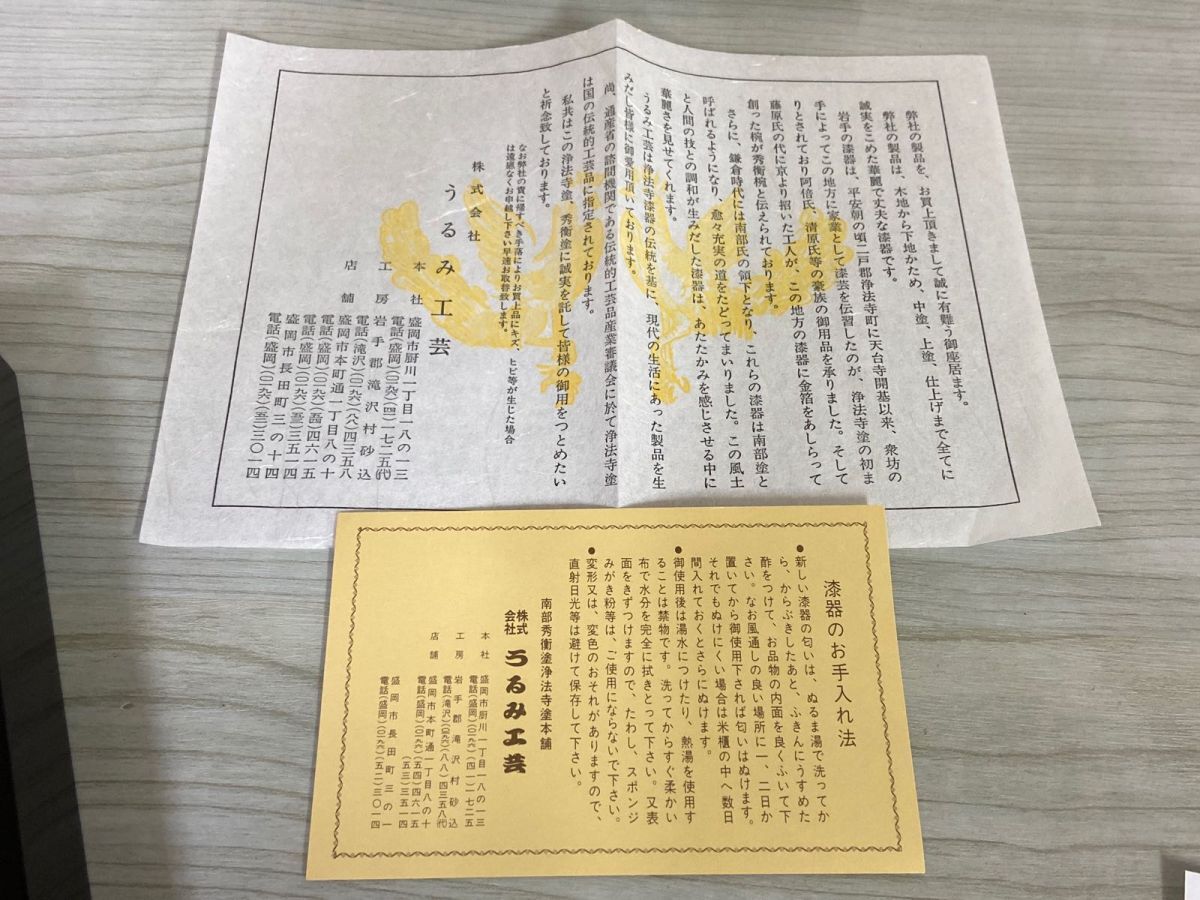 弊社の製品を、お買上頂きまして誠に有難う御座居ます。
弊社の製品は、木地から下地かため、中塗、上塗、仕上げまで全てに
誠実をこめた華麗で丈夫な漆器です。
岩手の漆器は、平安朝の頃二戸郡浄法寺町に天台寺開基以来、衆坊の
手によってこの地方に家業として漆芸を伝習したのが、浄法寺塗の初ま
りとされており阿倍氏、清原氏等の豪族の御用品を承りました。そして
藤原氏の代に京より招いた工人が、この地方の漆器に金箔をあしらって
創った椀が秀衡椀と伝えられております。
さらに、鎌倉時代には南部氏の領下となり、これらの漆器は南部塗と
呼ばれるようになり、愈々充実の道をたどってまいりました。この風土
と人間の技との調和が生みだした漆器は、あたたかみを感じさせる中に
華麗さを見せてくれます。
うるみ工芸は浄法寺漆器の伝統を基に、現代の生活にあった製品を生
みだし皆様に御愛用頂いております。
尚、通産省の諮問機関である伝統的工芸品産業審議会に於て浄法寺塗
は国の伝統的工芸品に指定されております。
私共はこの浄法寺塗、秀衡塗に誠実を託して皆様の御用をつとめたい
と祈念致しております。
なお弊社の責に帰すべき手落によりお買上品にキズ、ヒビ等が生じた場合
は遠慮なくお申越し下さい早速お取替致します。
株式会社
うるみ工芸
本社 盛岡市厨川一丁目一八の一三
電話(盛岡)(〇一九六)(四一)一七二五(代)
工房 岩手郡滝沢村砂込
電話(滝沢)(〇一九六)(八八)四三五八
店舗 盛岡市本町通一丁目八の十
電話(盛岡)(〇一九六)(五四)四六一五
電話(盛岡)(〇一九六)(五三)三五一四
盛岡市長田町三の十四
電話(盛岡)(〇一九六)(五二)三〇一四
漆器のお手入れ法
●新しい漆器の匂いは、ぬるま湯で洗ってか
ら、からぶきしたあと、ふきんにうすめた
酢をつけて、お品物の内面を良くふいて下
さい。なお風通しの良い場所に一、二日か
置いてから御使用下されば匂いはぬけます。
それでもぬけにくい場合は米櫃の中へ数日
間入れておくとさらにぬけます。
●御使用後は湯水につけたり、熱湯を使用す
ることは禁物です。洗ってからすぐ柔かい
布で水分を完全に拭きとって下さい。又表
面をきずつけますので、たわし、スポンジ
みがき粉等は、ご使用にならないで下さい。
●変形又は、変色のおそれがありますので、
直射日光等は避けて保存して下さい。
南部秀衡塗浄法寺塗本舗
株式会社 うるみ工芸
本社 盛岡市厨川一丁目一八の一三
電話(盛岡)(〇一九六)(四一)一七二五
工房 岩手郡滝沢村砂込
電話(滝沢)(〇一九六)(八八)四三五八(代)
店舗 盛岡市本町通一丁目八の十
電話(盛岡)(〇一九六)(五四)四六一五
(五三)三五一四
盛岡市長田町三の一
電話(盛岡)(〇一九六)(五二)三〇一四